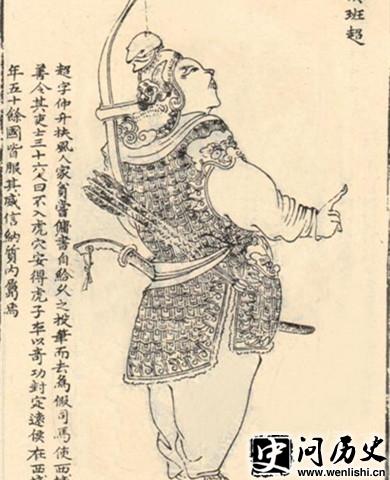 班超
超字仲升扶風人家貧嘗傭書自給久之投筆而去為假司馬使西
善令其吏士三十六人曰不入虎穴安得虎子率以奇功封定遠侯在西
年五十餘國皆服其威信納質內屬焉
史问历史
www.wenlishi.cn